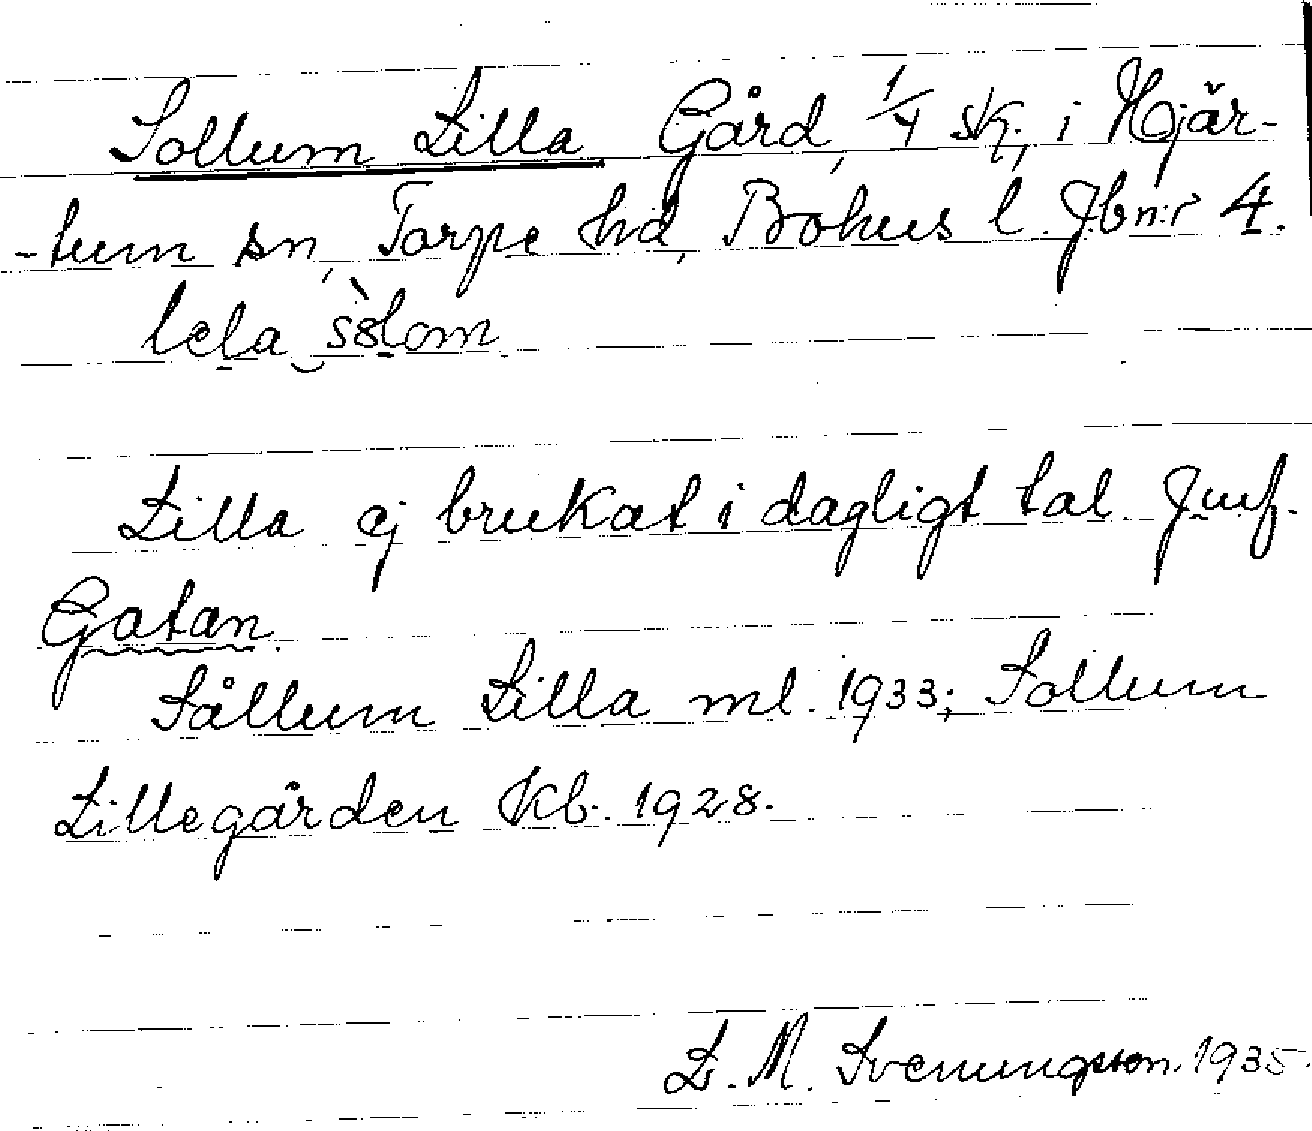 Sollum Lilla Gård, 1/4 sk., i Hjär-
-tum sn, Torpe hd, Bohus l. Jbnr 4.
lela s̀ɞlom
Lilla ej brukat i dagligt tal. Jmf.
Gatan.
Sållum Lilla ml. 1933; Sollum
Lillegården Kb. 1928.
L. M. Svenungsson. 1935.